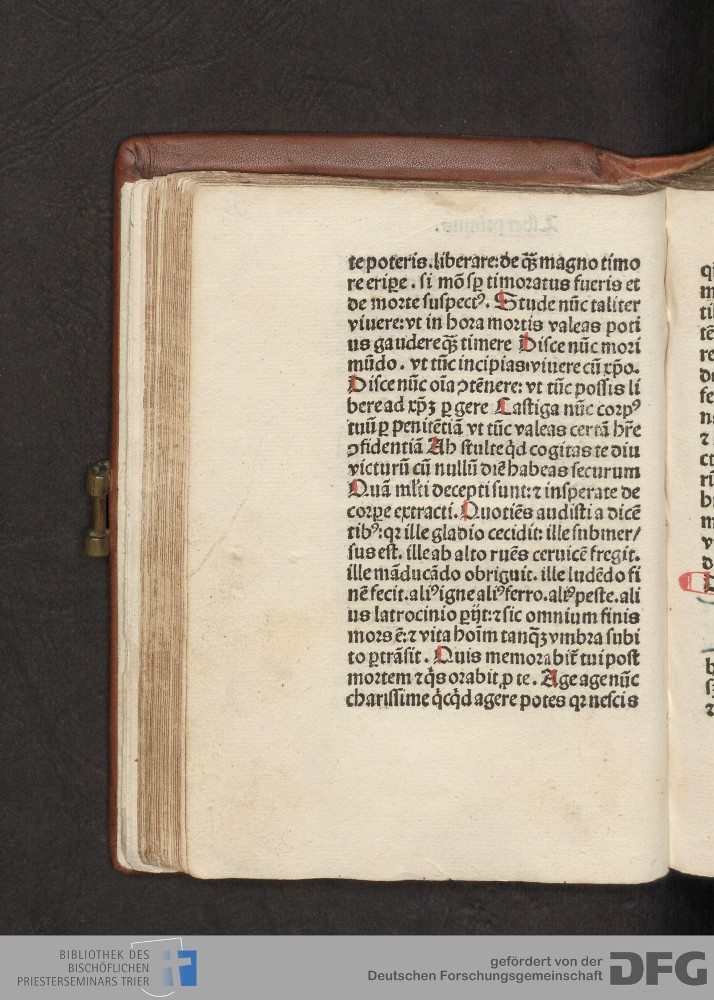 te poteris.liberare:de qȝ̃ magno timo
re eripe . si mõ sꝑ timoratus fueris et
de morte suspectꝰ. Stude nũc taliter
viuere:vt in hora mortis valeas poti
us gaudere qȝ̃ timere Disce nũc mori
mũdo . vt tũc incipias viuere cũ xp̃o.
Disce nũc oĩa ꝯtẽnere: vt tũc possis li
bere ad xp̃ȝ ꝑgere Castiga nũc corpꝰ
tuũ ꝑ penitẽtiã vt tũc valeas certã hr̃e
ꝯfidentiã Ah stulte q̇d cogitas te diu
victurũ cũ nullũ diẽ habeas securum
Quã ml̃ti decepti sunt:⁊ insperate de
corpe extracti. Quotiẽs audisti a dicẽ
tibꝰ:qꝛ ille gladio cecidit: ille submer/
sus est. ille ab alto ruẽs ceruicẽ fregit.
ille mãducãdo obriguit. ille ludẽdo fi
nẽ fecit.aliꝰ igne aliꝰ ferro.aliꝰ peste.ali
us latrocinio ꝑijt:⁊ sic omnium finis
mors ẽ:⁊ vita hoĩm tanqȝ̃ vmbra subi
to ꝑtrãsit . Quis memorabit̃ tui post
mortem ⁊ q̇s orabit ꝓ te . Age age nũc
charissime q̇cq̇d agere potes qꝛ nescis
BIBLIOTHEK DES
BISCHÖFLICHEN
PRIESTERSEMINARS TRIER
gefördert von der
Deutschen Forschungsgemeinschaft
DFG